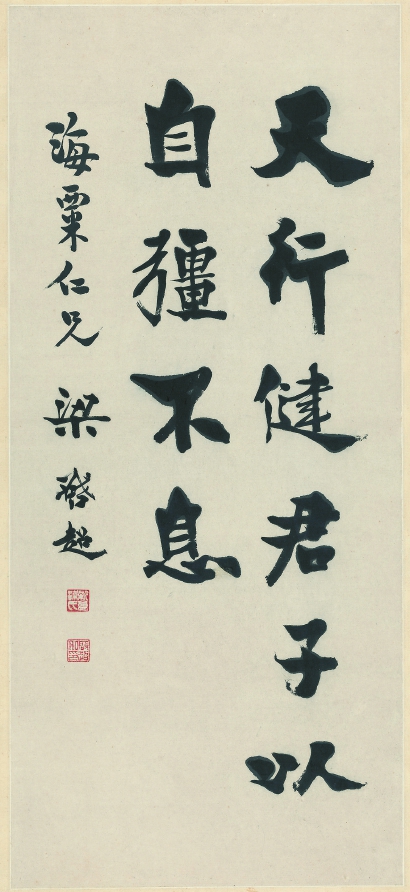 天行健君子以
自彊不息
海粟仁兄 梁啟超